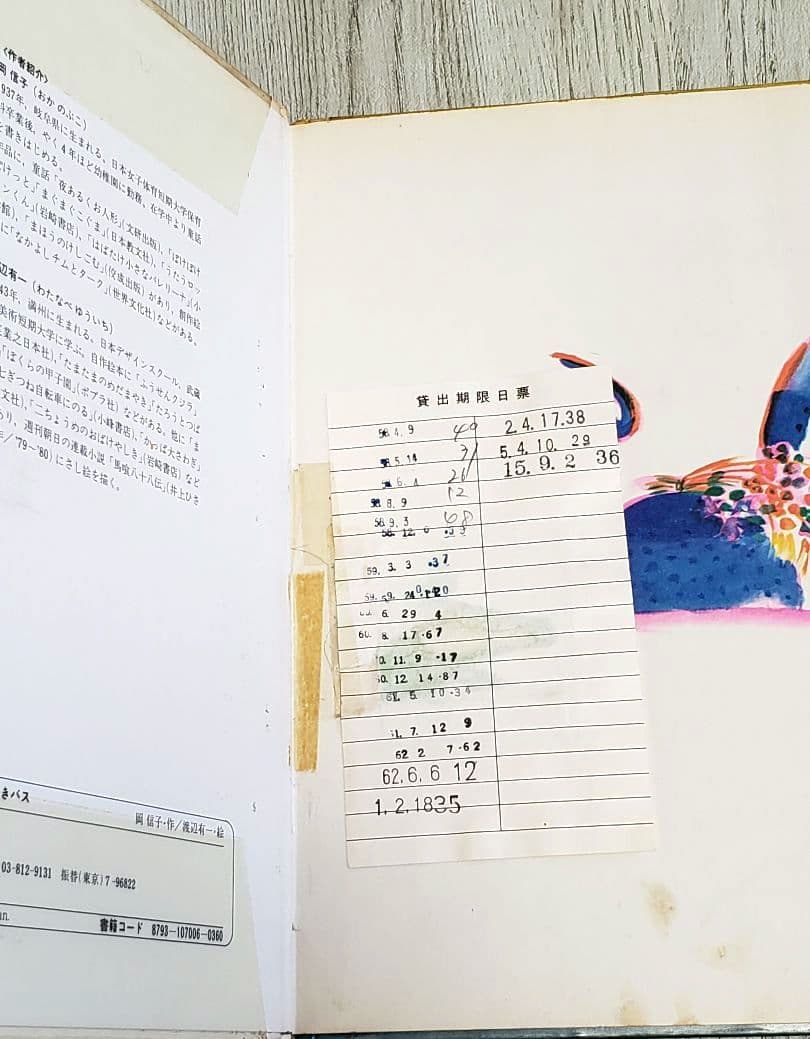 〈作者紹介〉
岡 信子（おか のぶこ）
1937年，岐阜県に生まれる。日本女子体育短期大学保育
科卒業後，やく4年ほど幼稚園に勤務，在学中より童話
を書きはじめる。
作品に，童話「夜あるくお人形」（文研出版），「ぽけぽけ
ぽけっと」「まぐまぐこぐま」（日本教文社），「うたうロッ
ンくん」（岩崎書店），「はばたけ小さなバレリーナ」（小
館），「まほうのけしごむ」（佼成出版）があり，創作絵
に「なかよしチムとターク」（世界文化社）などがある。
辺有一（わたなべ ゆういち）
43年，満州に生まれる。日本デザインスクール，武蔵
美術短期大学に学ぶ。自作絵本に「ふうせんクジラ」
業之日本社），「たまたまのめだまやき」「たろうとつば
「ぼくらの甲子園」（ポプラ社）などがある。他に「ま
七ぎつね自転車にのる」（小峰書店），「かっぱ大さわぎ」
文社），「二ちょうめのおばけやしき」（岩崎書店）など
あり，週刊朝日の連載小説「馬喰八十八伝」（井上ひさ
／'79〜'80）にさし絵を描く。
きバス
岡 信子・作／渡辺有一・絵
03-812-9131 振替（東京）7-96822
書籍コード 8793-107006-0360
貸出期限日票
58 4. 9 40
58 5. 14
6. 4
8. 9 12
58. 9. 3 68
58. 12.
59. 3. 3 ·37
6 29 4
60. 8. 17 ·67
11. 9 ·17
12 14 ·87
61. 5. 10 ·34
7. 12 9
62 2 7 ·62
62. 6. 6 12
1. 2. 18 35
2. 4. 17. 38
5. 4. 10. 29
15. 9. 2 36